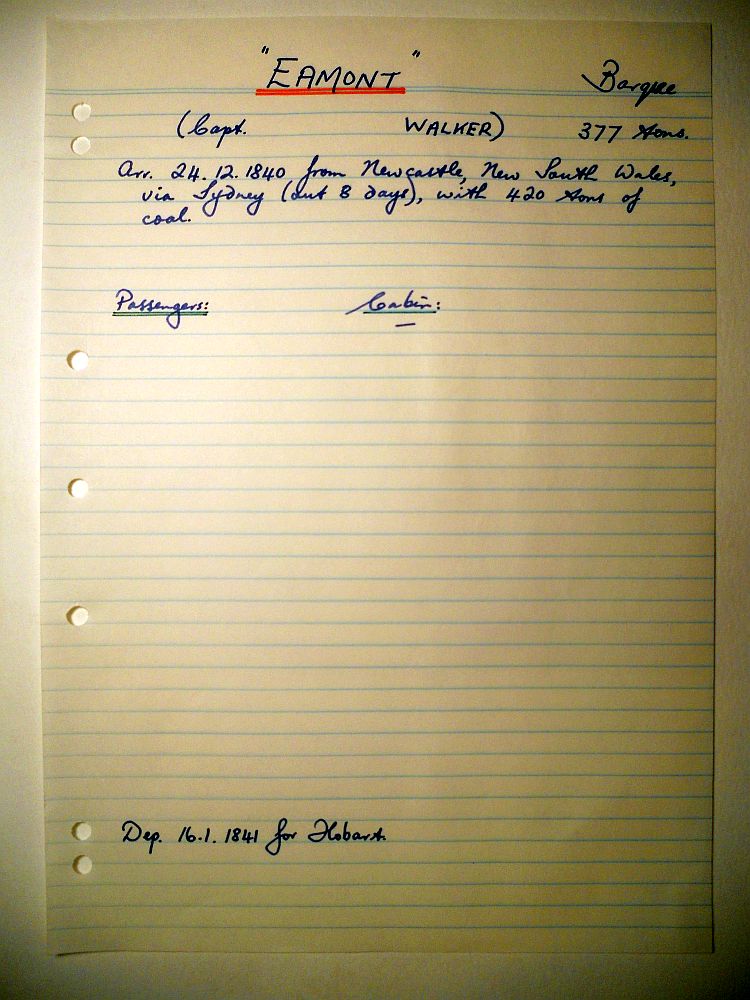 "EAMONT" Barque
(Capt. WALKER) 377 tons.
Arr. 24.12.1840 from Newcastle, New South Wales,
via Sydney (out 8 days), with 420 tons of
coal.
Passengers: Cabin:
—
Dep. 16.1.1841 for Hobart.